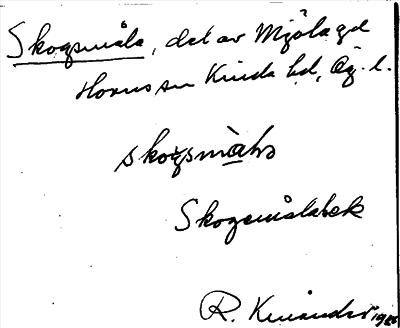 Skogsmåla, del av Mjölagd
Horns sn Kinda hd, Ög. l.
skogsmåla
Skogsmålabek
R.